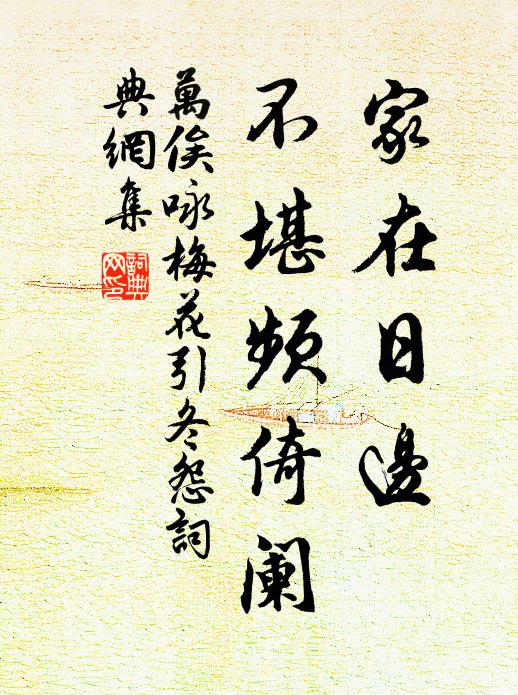 家在日邊
不堪頻倚阑
萬俟咏梅花引冬怨詞
典網集
詞典
网印